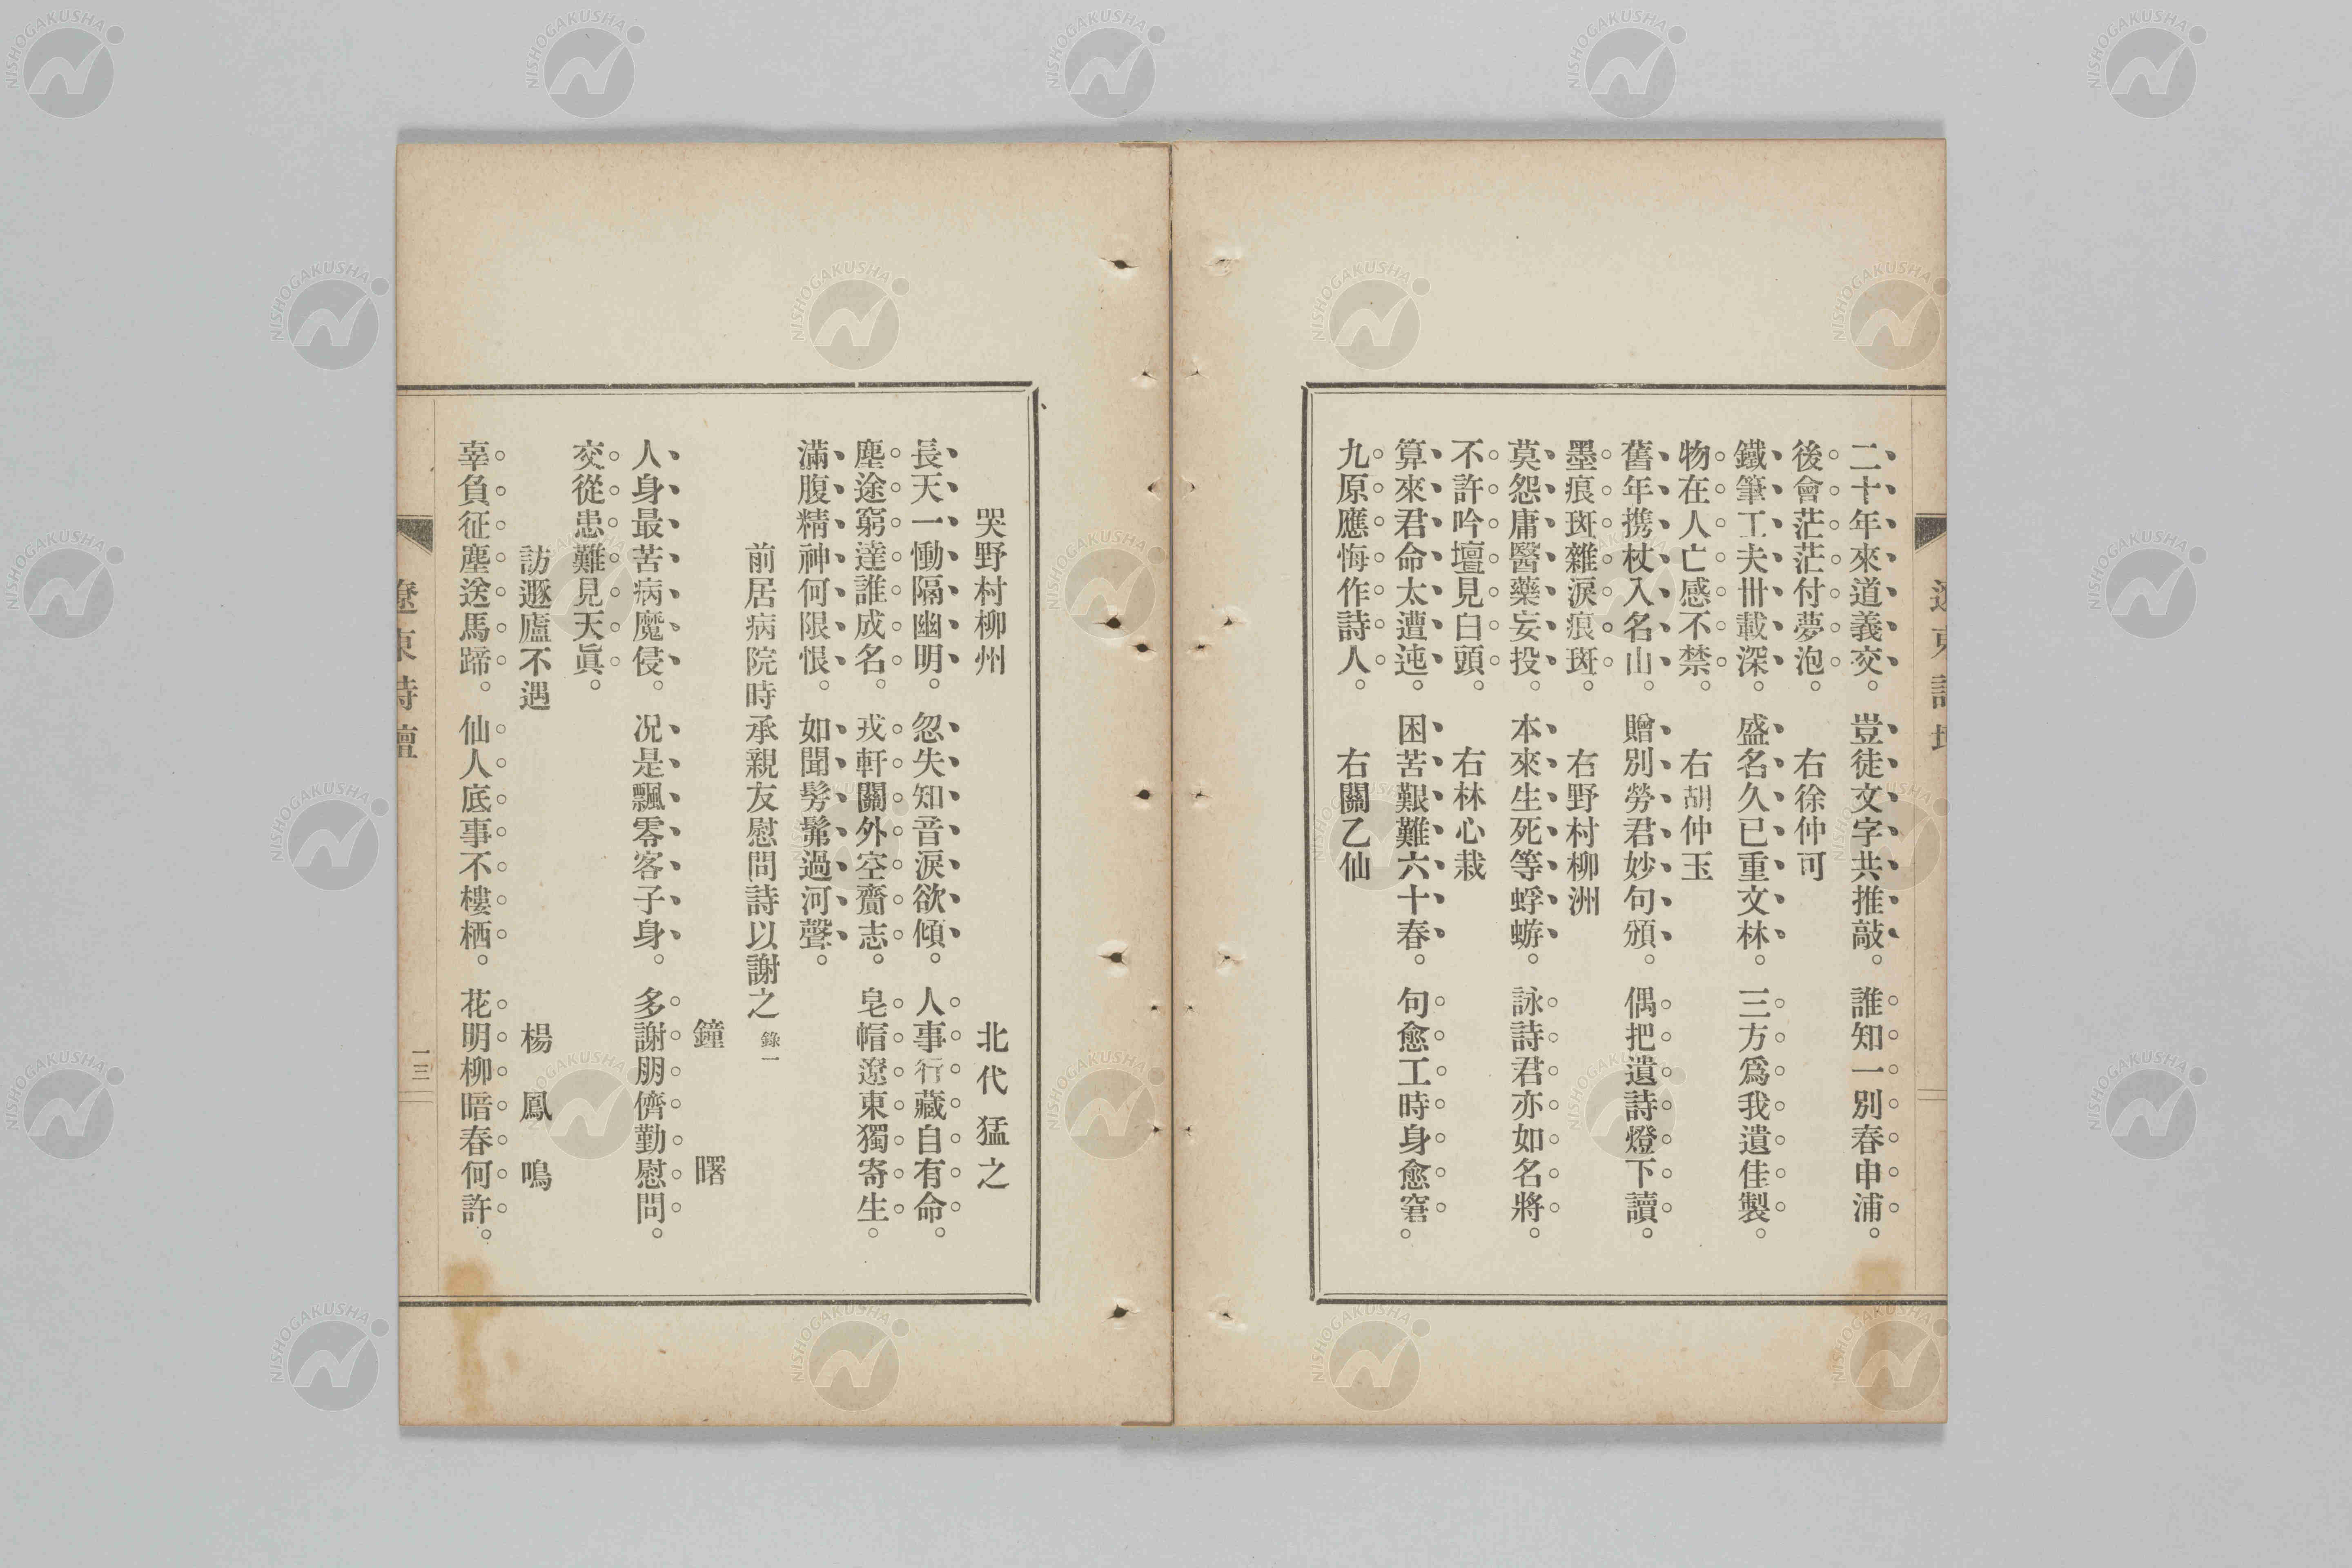 二十年來道義交。豈徒文字共推敲。誰知一別春申浦。
後會茫茫付夢泡。右徐仲可
鐵筆工夫卅載深。盛名久已重文林。三方爲我遺佳製。
物在人亡感不禁。右胡仲玉
舊年携杖入名山。贈別勞君妙句頒。偶把遺詩燈下讀。
墨痕斑雜淚痕斑。右野村柳洲
莫怨庸醫藥妄投。本來生死等蜉蝣。詠詩君亦如名將。
不許吟壇見白頭。右林心栽
算來君命太遭迍。困苦艱難六十春。句愈工時身愈窘。
九原應悔作詩人。右關乙仙
哭野村柳州 北代猛之
長天一慟隔幽明。忽失知音淚欲傾。人事行藏自有命。
塵途窮達誰成名。戎軒關外空齎志。皂帽遼東獨寄生。
滿腹精神何限恨。如聞髣髴過河聲。
前居病院時承親友慰問詩以謝之 錄一
鐘曙
人身最苦病魔侵。况是飄零客子身。多謝朋儕勤慰問。
交從患難見天眞。
訪遯廬不遇 楊鳳鳴
辜負征塵送馬蹄。仙人底事不樓栖。花明柳暗春何許。
遼東詩壇
一三
NISHOGAKUSHA